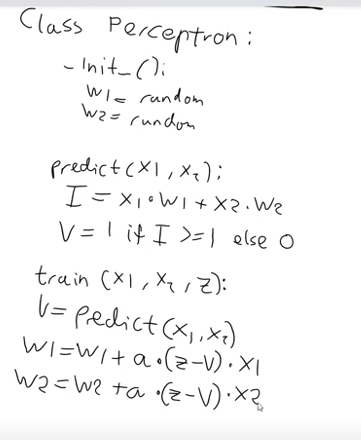 Class Perceptron:
-Init_():
W1= random
W2= random
predict(X1,X2):
I = X1•W1+X2.W2
V=1 if I >=1 else 0
train (X1,X2,Z):
V=Predict(X1,X2)
W1=W1+a•(z-V)•X1
W2=W2+a•(z-V)•X2